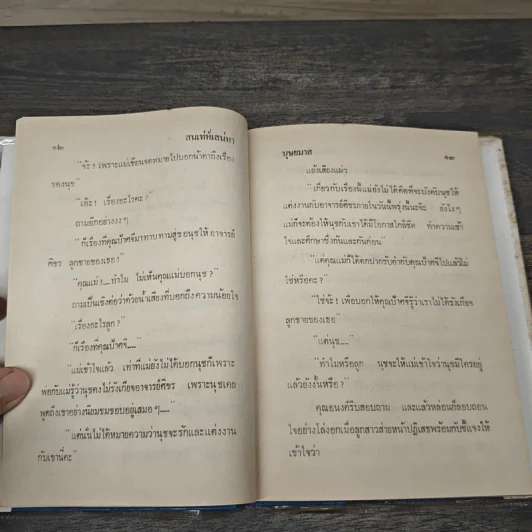 ๑๒
สนเท่ห์เสน่หา
"จ้ะ ! เพราะแม่เขียนจดหมายไปบอกน้าดาถึงเรื่อง
ของนุช"
"เอ๊ะ ! เรื่องอะไรคะ ?"
ถามอีกอย่างงงๆ
"ก็เรื่องที่คุณป้าศจีมาทาบทามสู่ขอนุชให้อาจารย์
ศิขร ลูกชายของเธอ !"
"คุณแม่ !....ทำไม ไม่เห็นคุณแม่บอกนุช ?"
ถามเป็นเชิงต่อว่าด้วยน้ำเสียงที่บอกถึงความน้อยใจ
"เรื่องอะไรลูก ?"
"ก็เรื่องที่คุณป้าศจี....."
"แม่เข้าใจแล้ว เท่าที่แม่ยังไม่ได้บอกนุชก็เพราะ
พ่อกับแม่รู้ว่านุชคงไม่รังเกียจอาจารย์ศิขร เพราะนุชเคย
พูดถึงเขาอย่างนิยมชมชอบอยู่เสมอๆ....."
"แต่นั่นไม่ได้หมายความว่านุชจะรักและแต่งงาน
กับเขานี่คะ"
บุษยมาส
๑๓
แย้งเสียงแผ่ว
"เกี่ยวกับเรื่องนี้แม่ยังไม่ได้คิดที่จะบังคับนุชให้
แต่งงานกับอาจารย์ศิขรภายในวันนี้พรุ่งนี้นะจ๊ะ ยังไงๆ
แม่ก็จะต้องให้นุชกับเขาได้มีโอกาสใกล้ชิด ทำความเข้า
ใจและศึกษาซึ่งกันและกันก่อน"
"แต่คุณแม่ก็ได้ตกปากรับคำกับคุณป้าศจีไปแล้วมิ
ใช่หรือคะ ?"
"ใช่จ้ะ ! เพื่อบอกให้คุณป้าศจีรู้ว่าเราไม่ได้รังเกียจ
ลูกชายของเธอ"
"แต่นุช....."
"ทำไมหรือลูก นุชจะให้แม่เข้าใจว่านุชมีใครอยู่
แล้วยังงั้นหรือ ?"
คุณอนงค์รีบสอบถาม และแล้วหล่อนก็ลอบถอน
ใจอย่างโล่งอกเมื่อลูกสาวส่ายหน้าปฏิเสธพร้อมกับชี้แจงให้
เข้าใจว่า